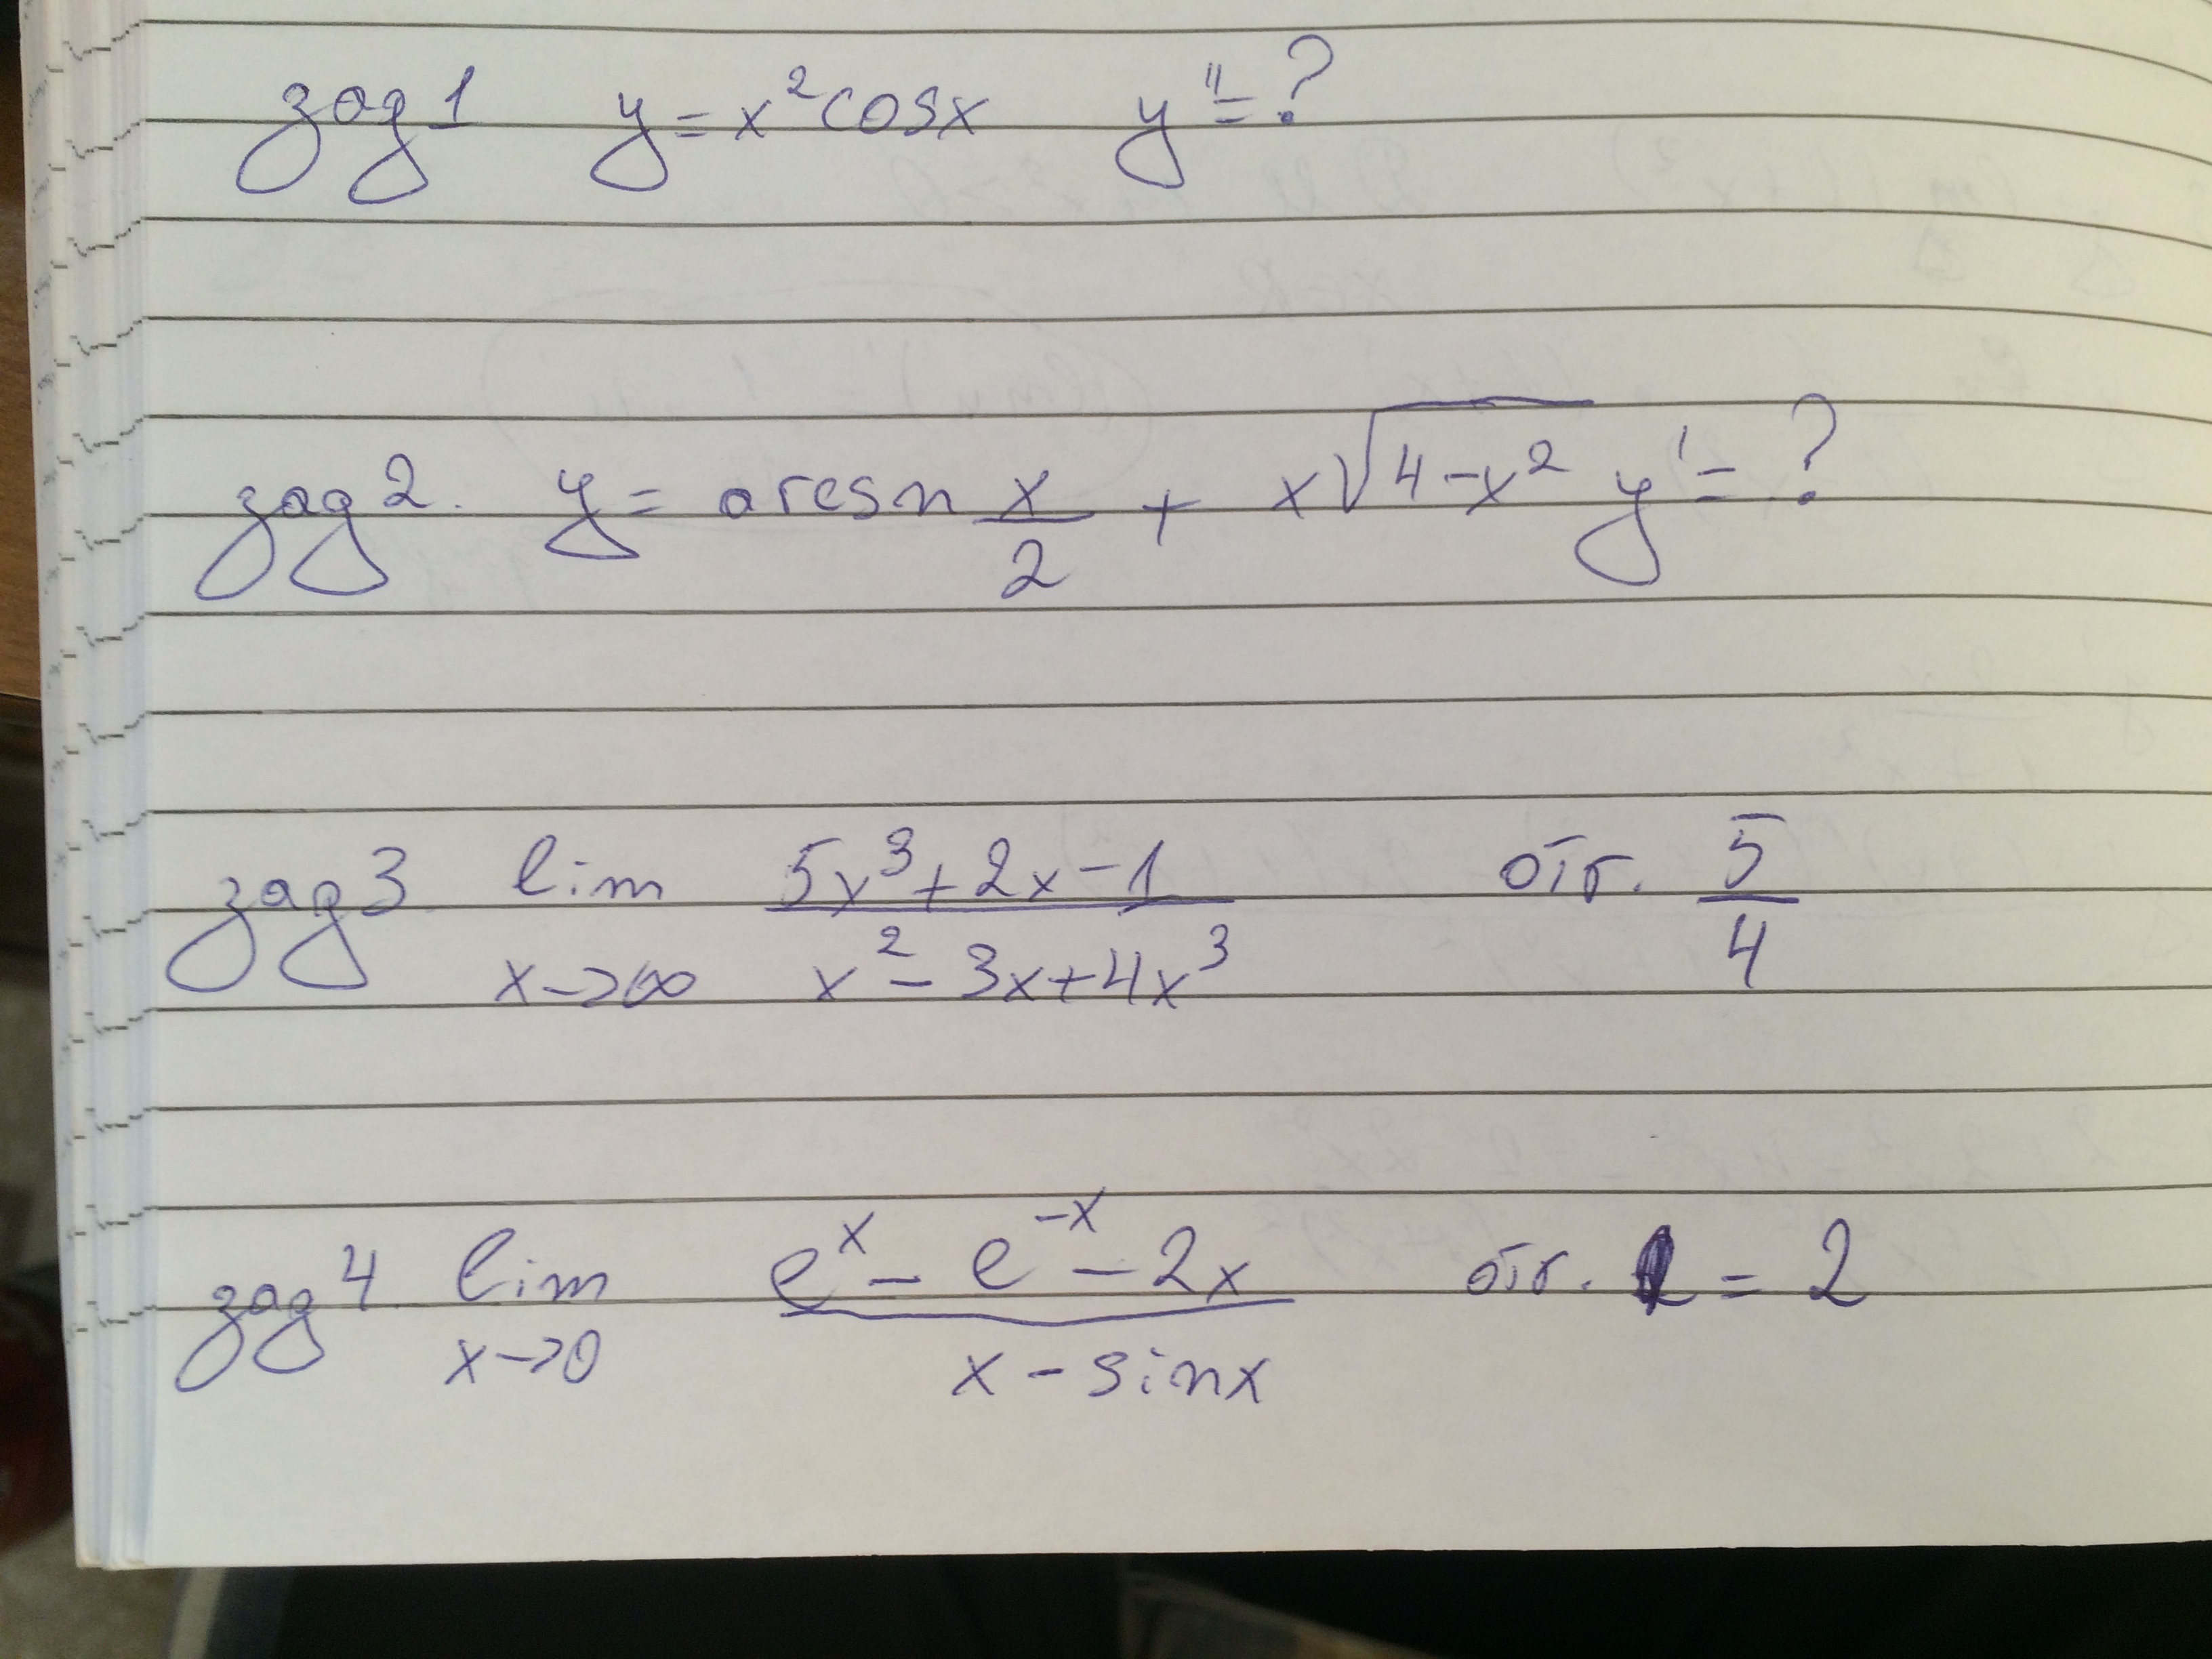 заg 1 y = x² cosx y'' = ?
заg 2. y = arcsn x/2 + x√(4-x²) y' = ?
заg 3 lim x→∞ (5x³+2x-1)/(x²-3x+4x³) отг. 5/4
заg 4 lim x→0 (eˣ - e⁻ˣ - 2x)/(x - sinx) отг. = 2